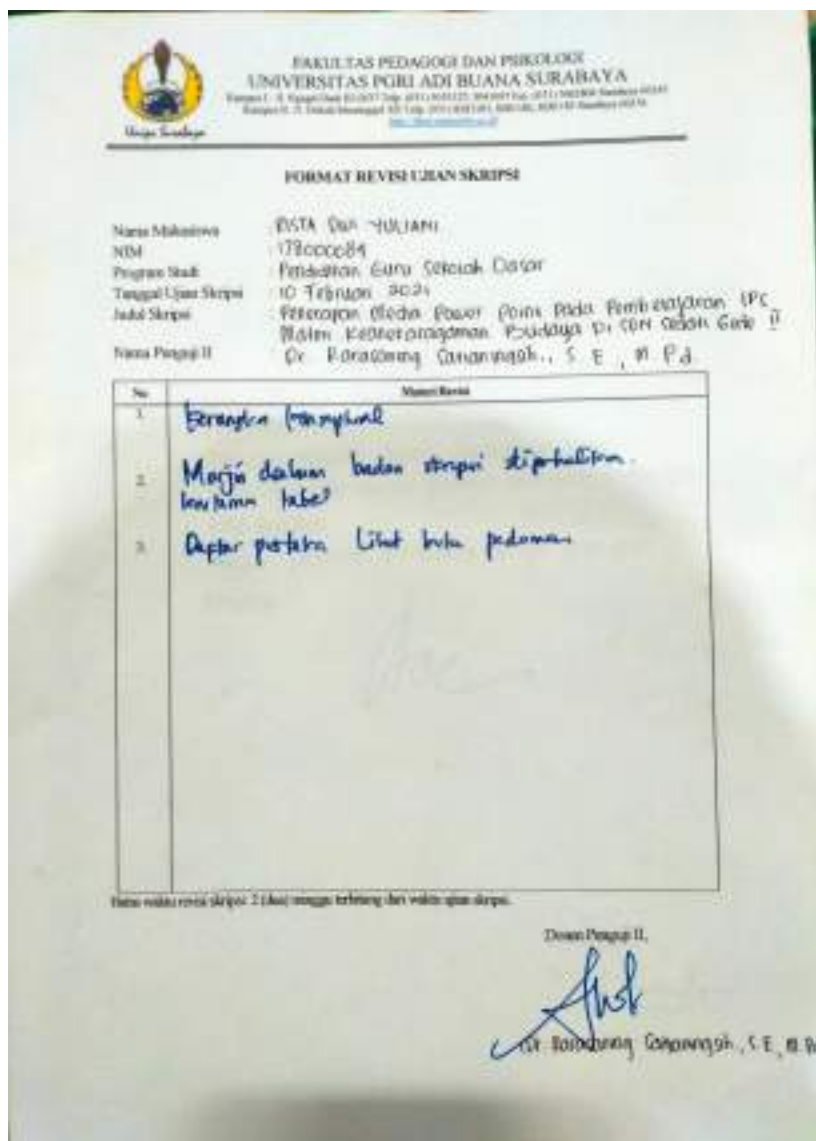 FAKULTAS PEDAGOGI DAN PSIKOLOGI
UNIVERSITAS PGRI ADI BUANA SURABAYA
Unipa Surabaya
FORMAT REVISI UJIAN SKRIPSI
Nama Mahasiswa : RISTA DWI YULIANI
NIM : 178000084
Program Studi : Pendidikan Guru Sekolah Dasar
Tanggal Ujian Skripsi : 10 Februari 2021
Judul Skripsi : Penerapan Media Power Point Pada Pembelajaran IPS
Materi Keanekaragaman Budaya Di SDN Gede II
Nama Penguji II : Dr. Rarasaning S.E, M.Pd
No Materi Revisi
1. Kerangka konseptual
2. Margin dalam badan skripsi diperhatikan.
terutama tabel
3. Daftar pustaka Lihat buku pedoman
Batas waktu revisi skripsi 2 (dua) minggu terhitung dari waktu ujian skripsi.
Dosen Penguji II,
S.E, M.Pd